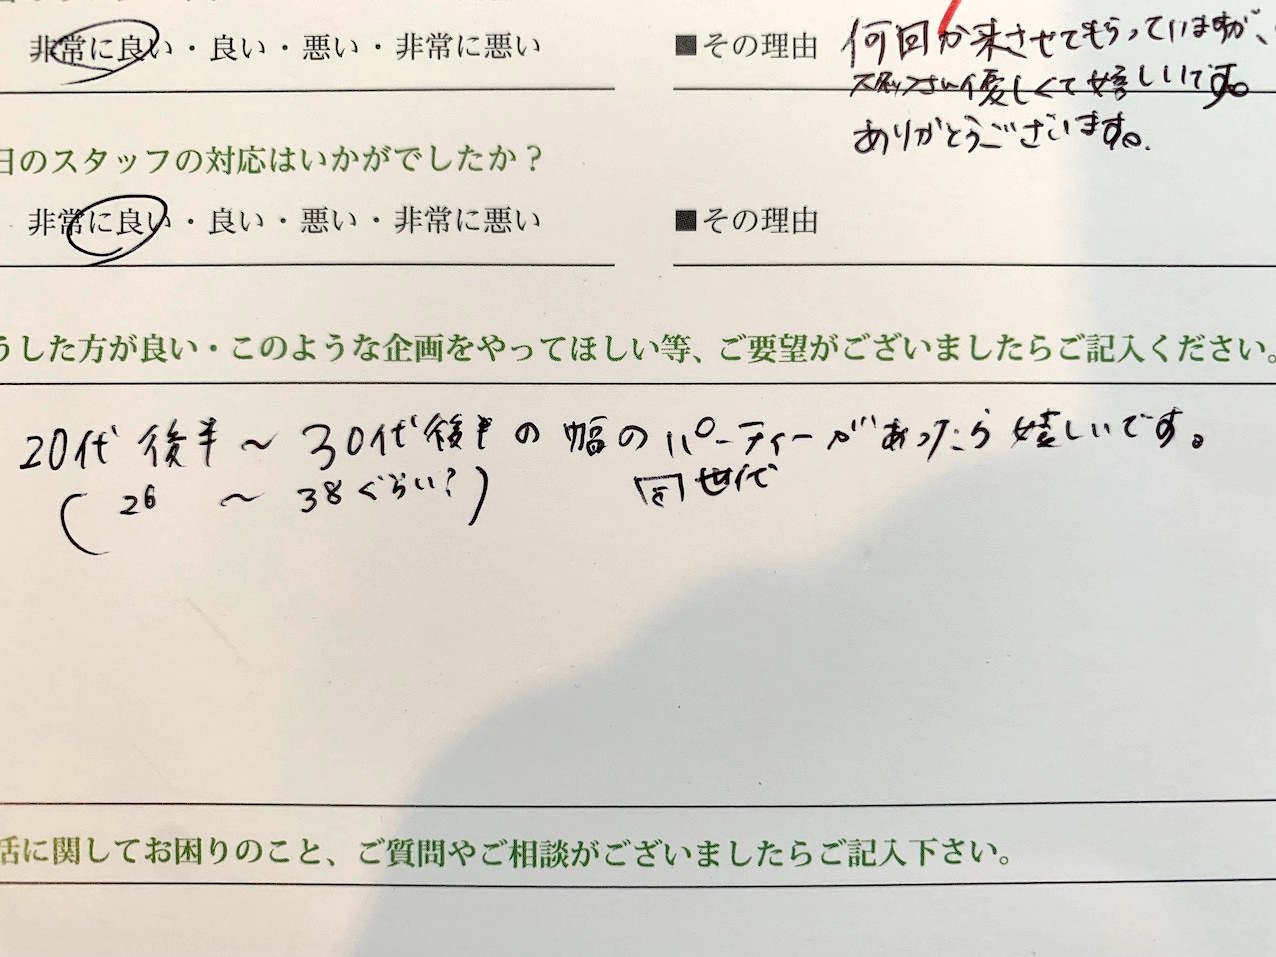 非常に良い・良い・悪い・非常に悪い
■その理由 何回か来させてもらっていますが、
スタッフさん優しくて嬉しいです。
ありがとうございます。
日のスタッフの対応はいかがでしたか？
非常に良い・良い・悪い・非常に悪い
■その理由
うした方が良い・このような企画をやってほしい等、ご要望がございましたらご記入ください。
20代後半～30代後半の幅のパーティーがあったら嬉しいです。
(26～38ぐらい?)
同世代
活に関してお困りのこと、ご質問やご相談がございましたらご記入下さい。